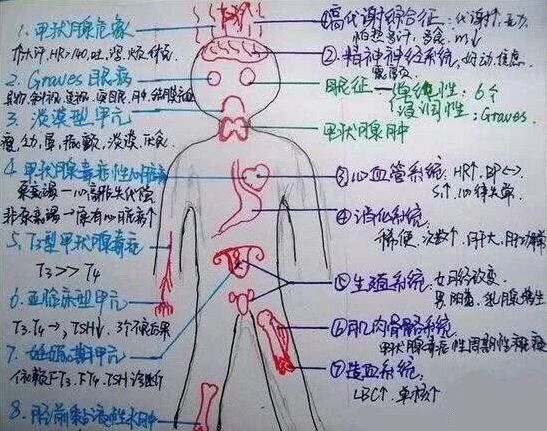 1. 甲状腺危象
大汗, HR>140, 吐, 泻, 烦,
2. Graves 眼病
3. 淡漠型甲亢
瘦, 幼, 震颤, 淡漠, 厌食
4. 甲状腺毒症性心脏病
高排失代偿
原有心脏病↑
5. T3型甲状腺毒症
T3>>T4
6. 亚临床型甲亢
T3.T4→, TSH↓
7. 妊娠期甲亢
依赖FT3. FT4. TSH诊断
8. 胫前黏液性水肿
①高代谢综合征: 代谢↑. 乏力
怕热多汗. 多食.
②精神神经系统: 焦虑
震颤
眼征—单纯性: 6个
浸润性: Graves.
甲状腺肿
③心血管系统: HR↑. BP
S1↑. 心律失常
④消化系统:
稀便. 次数↑. 肝大. 肝功能
⑤生殖系统: 女月经改变
男阳萎, 乳腺发育
⑥肌肉骨骼系统
甲状腺毒症性周期性
⑦造血系统:
LBC↑. 单核↑